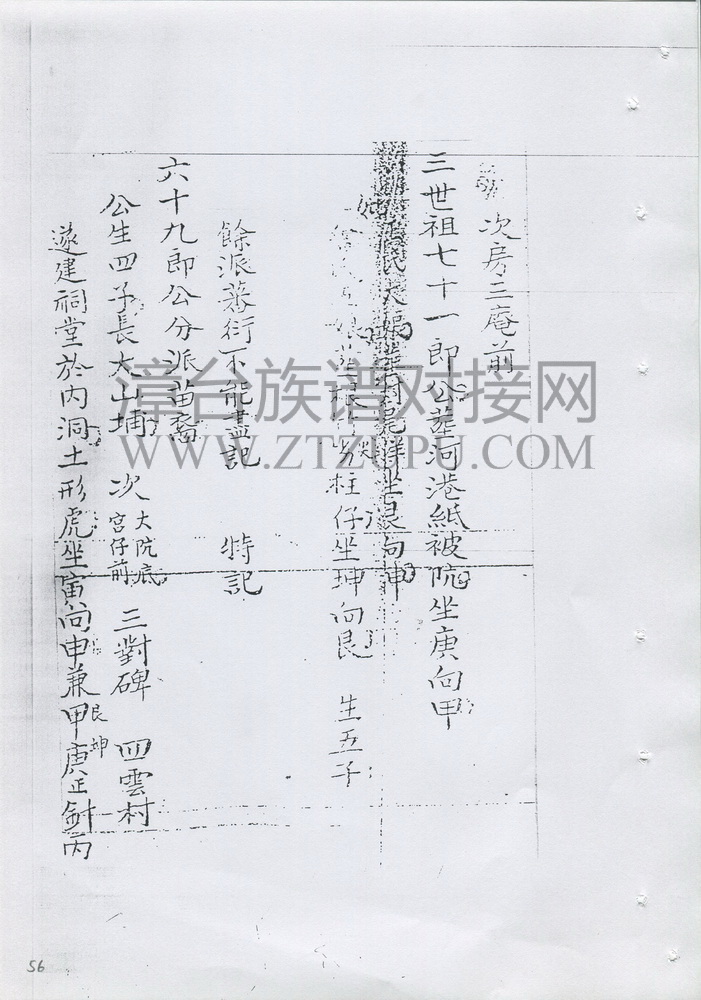 次房三庵前
三世祖七十一郎公葬河港紙被阬坐庚向甲
坐艮向坤
柱仔坐坤向艮 生五子
餘派蕃衍不能盡記 特記
六十九郎公分派苗裔
公生四子長大山埔 次大阬底宮仔前 三對碑 四雲村
遂建祠堂於內洞土形虎坐寅向申兼甲庚艮坤正針丙
漳台族谱对接网
WWW.ZTZUPU.COM
56